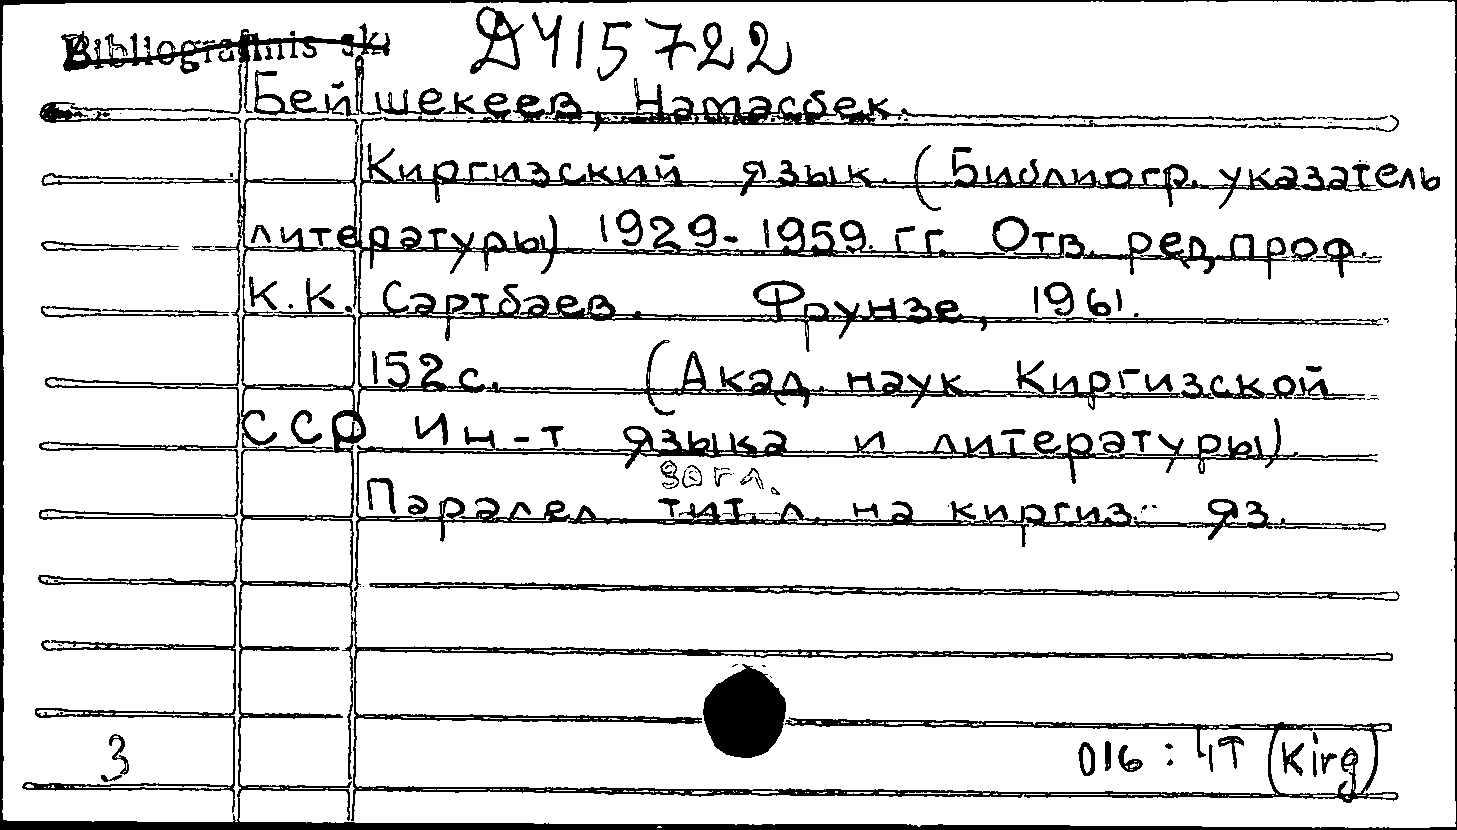 Bibliografinis sk.
ДЧ15722
Бейшекеев, Намасбек.
Киргизский язык. (Библиогр. указатель
литературы) 1929-1959 гг. Отв. ред. проф.
К.К. Сартбаев. Фрунзе, 1961.
152 с. (Акад. наук Киргизской
ССР Ин-т языка и литературы)
загл.
Паралел. тит. л. на киргиз. яз.
3
016:4Т (Kirg)